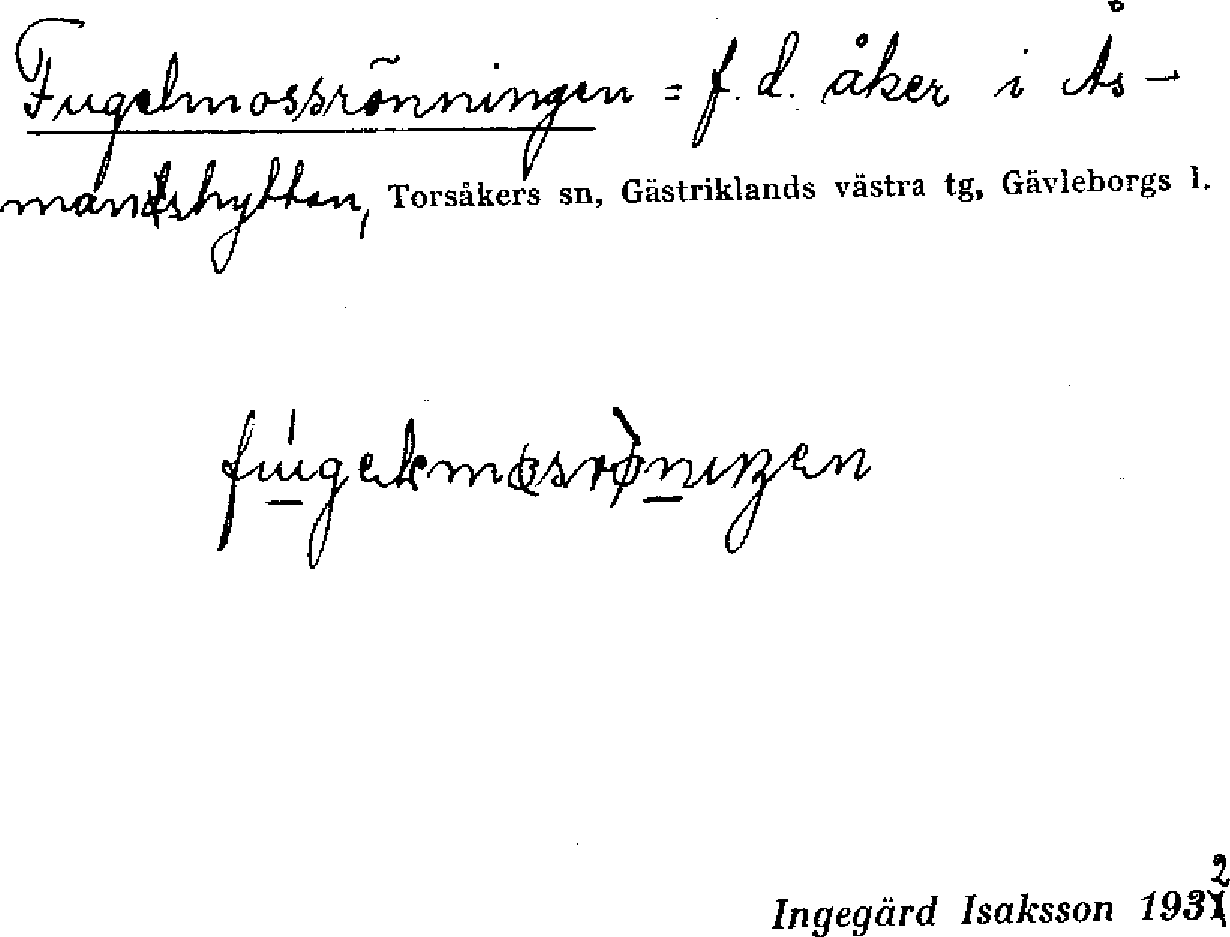 Fugelmossrönningen = f. d. åker i Ås-
manshyttan, Torsåkers sn, Gästriklands västra tg, Gävleborgs l.
Ingegärd Isaksson 1932